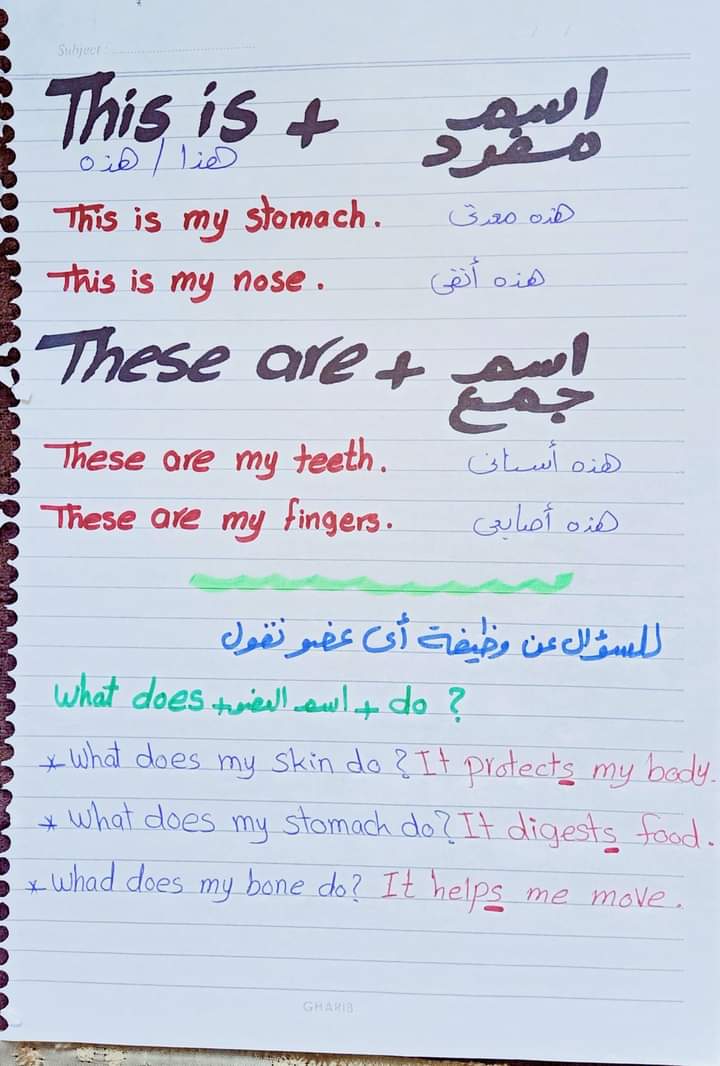 Subject:
This is + اسم
مفرد
هذا / هذه
This is my stomach. هذه معدتى
This is my nose. هذه أنفى
These are + اسم
جمع
These are my teeth. هذه أسنانى
These are my fingers. هذه أصابعى
للسؤال عن وظيفة أى عضو نقول
What does + اسم العضو + do ?
* What does my skin do ? It protects my body.
* What does my stomach do? It digests food.
* Whad does my bone do? It helps me move.
GHARIB